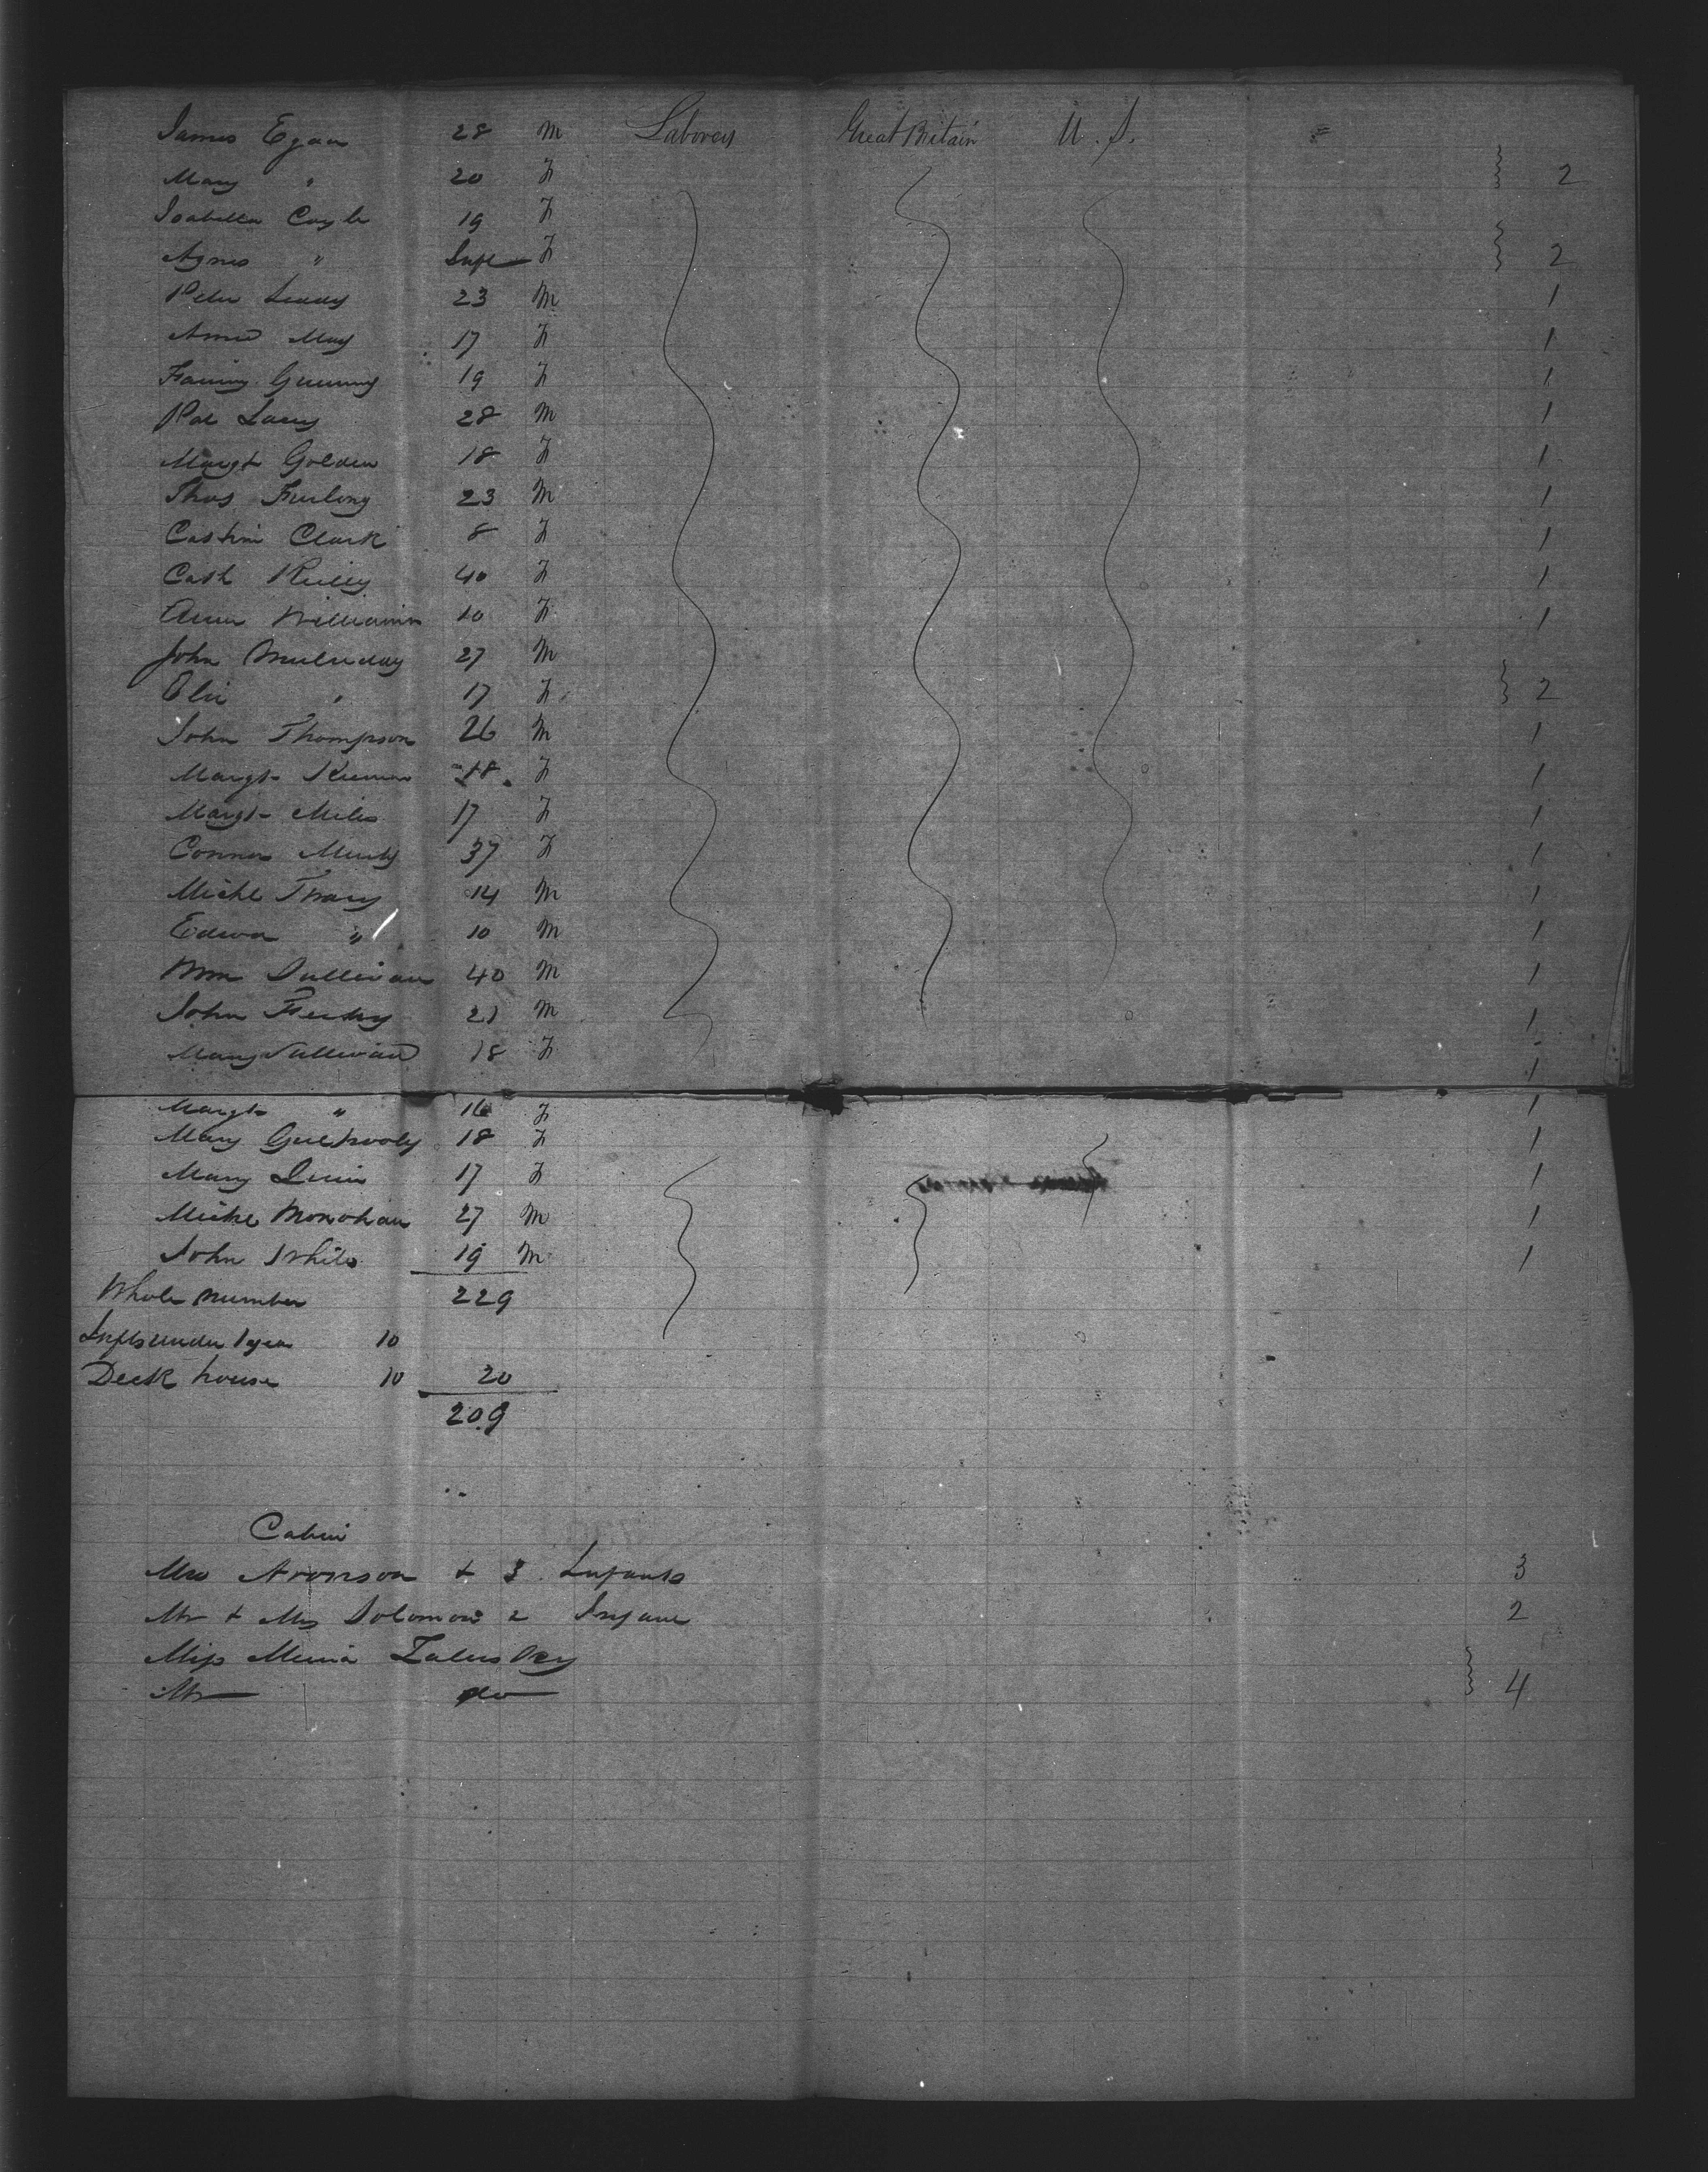 James Egan 28 M Laborers Great Britain U.S. "
Mary " 20 F 2
Isabella Coyle 19 F
Agnes " Inft F 2
Peter Leddy 23 M 1
Annie May 17 F 1
Fanny 19 F 1
Pat Lacey 28 M 1
Margt Golden 18 F 1
Thos Furlong 23 M 1
Clark 8 F 1
Cath Reilly 40 F 1
Ann Williams 10 F 1
John 27 M
" 17 F 2
John Thompson 26 M 1
Margt 18 F 1
Margt Miles 17 F 1
Connor 37 F 1
Michl Tracy 14 M 1
" 10 M 1
Wm Sullivan 40 M 1
John 21 M 1
Mary Sullivan 18 F 1
Margt " 16 F 1
Mary 18 F 1
Mary 17 F 1
Michl Monohan 27 M 1
John White 19 M 1
Whole number 229
Infts under 1 year 10
Deck house 10 20
209
Cabin
Mrs Aronson + 3 Infants 3
Mr + Mrs Solomon 2 2
Miss
Mr do 4